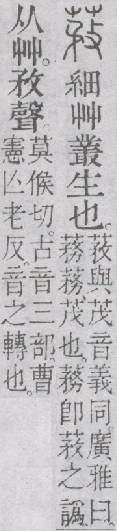 細艸叢生也。
與茂音義同。廣雅曰。
蓩蓩茂也。蓩卽之譌。
从艸。敄聲。
莫候切。古音三部。曹
憲亾老反。音之轉也。